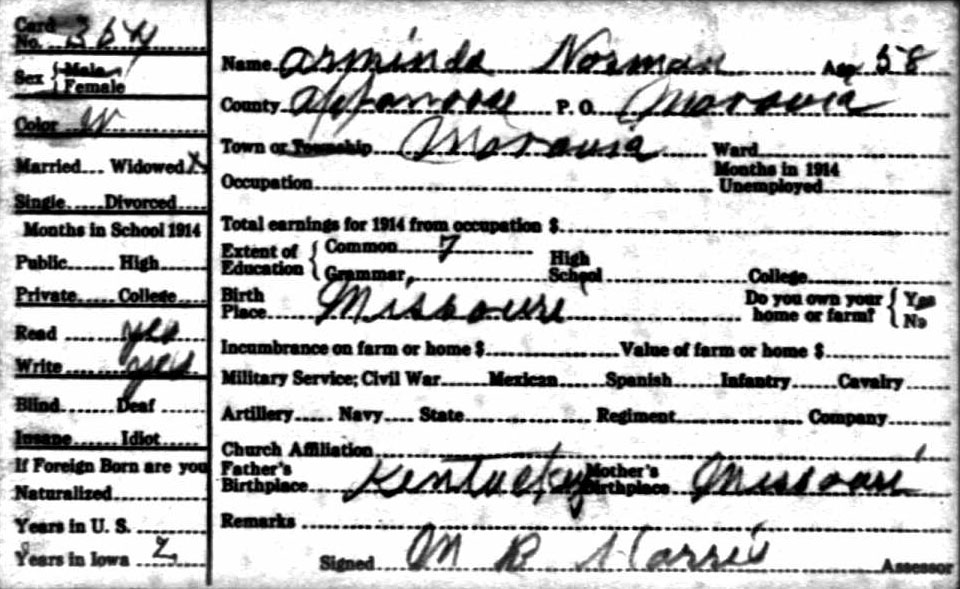 Card No. 364
Sex { Male Female
Color W
Married.... Widowed x
Single..... Divorced......
Months in School 1914
Public...... High......
Private..... College......
Read yes
Write yes
Blind...... Deaf......
Insane...... Idiot......
If Foreign Born are you
Naturalized..........
Years in U. S. ........
Years in Iowa 2
Name Arminda Norman Age 58
County Appanoose P. O. Moravia
Town or Township Moravia Ward
Occupation Months in 1914 Unemployed
Total earnings for 1914 from occupation $
Extent of Education { Common 7 Grammar High School College
Birth Place Missouri Do you own your home or farm? { Yes No
Incumbrance on farm or home $ Value of farm or home $
Military Service; Civil War...... Mexican...... Spanish...... Infantry...... Cavalry......
Artillery..... Navy.... State............ Regiment............ Company
Church Affiliation
Father's Birthplace Kentucky Mother's Birthplace Missouri
Remarks
Signed M B Harris Assessor